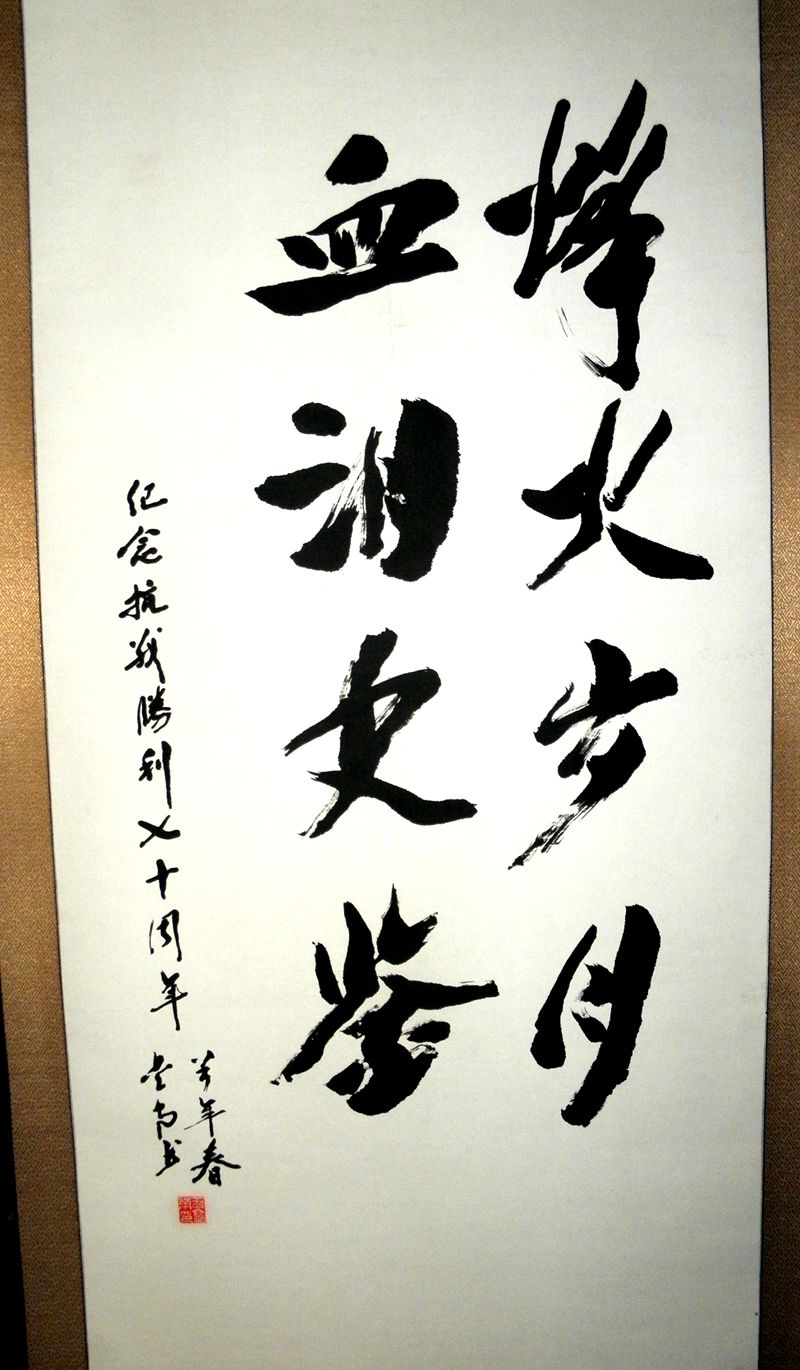 烽火岁月
血泪史鉴
纪念抗战勝利七十周年
羊年春
书